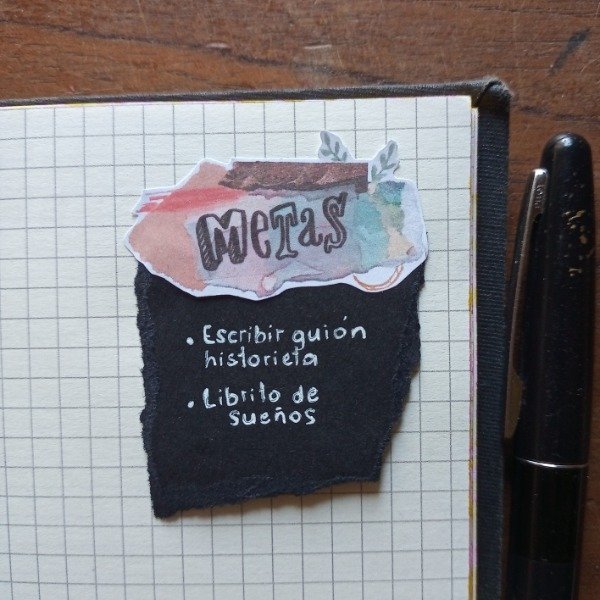 Metas
• Escribir guión
historieta
• Librito de
sueños